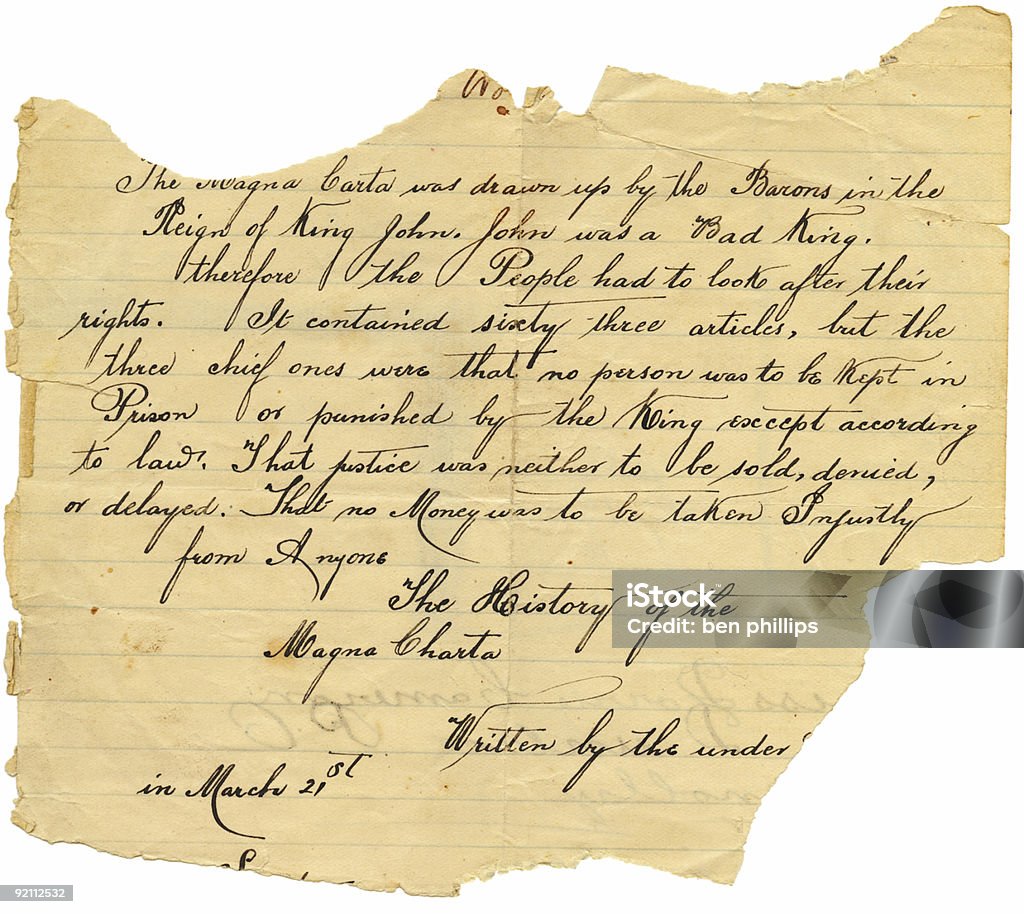 No
The Magna Carta was drawn up by the Barons in the
Reign of King John. John was a Bad King.
therefore the People had to look after their
rights. It contained sixty three articles, but the
three chief ones were that no person was to be Kept in
Prison or punished by the King except according
to law. That justice was neither to be sold, denied,
or delayed. That no Money was to be taken Injustly
from Anyone
The History of the
Magna Charta
Written by the under
in March 21st
iStock
Credit: ben phillips
92112532